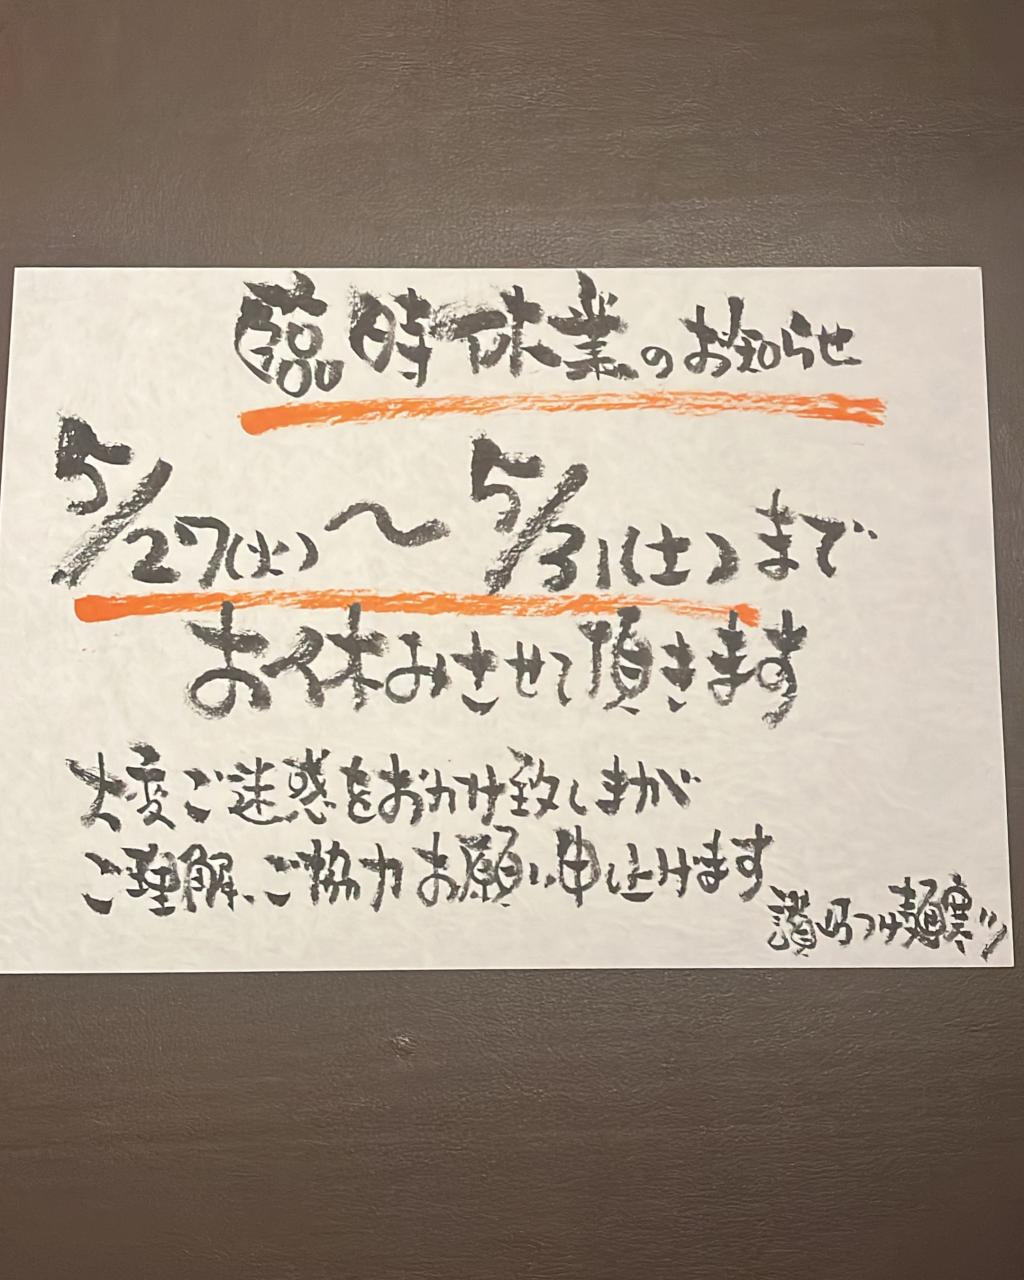 臨時休業のお知らせ
5/27(火)〜5/31(土)まで
お休みさせて頂きます
大変ご迷惑をおかけ致しまが
ご理解、ご協力お願い申し上げます
讃岐つけ麺寒ツ